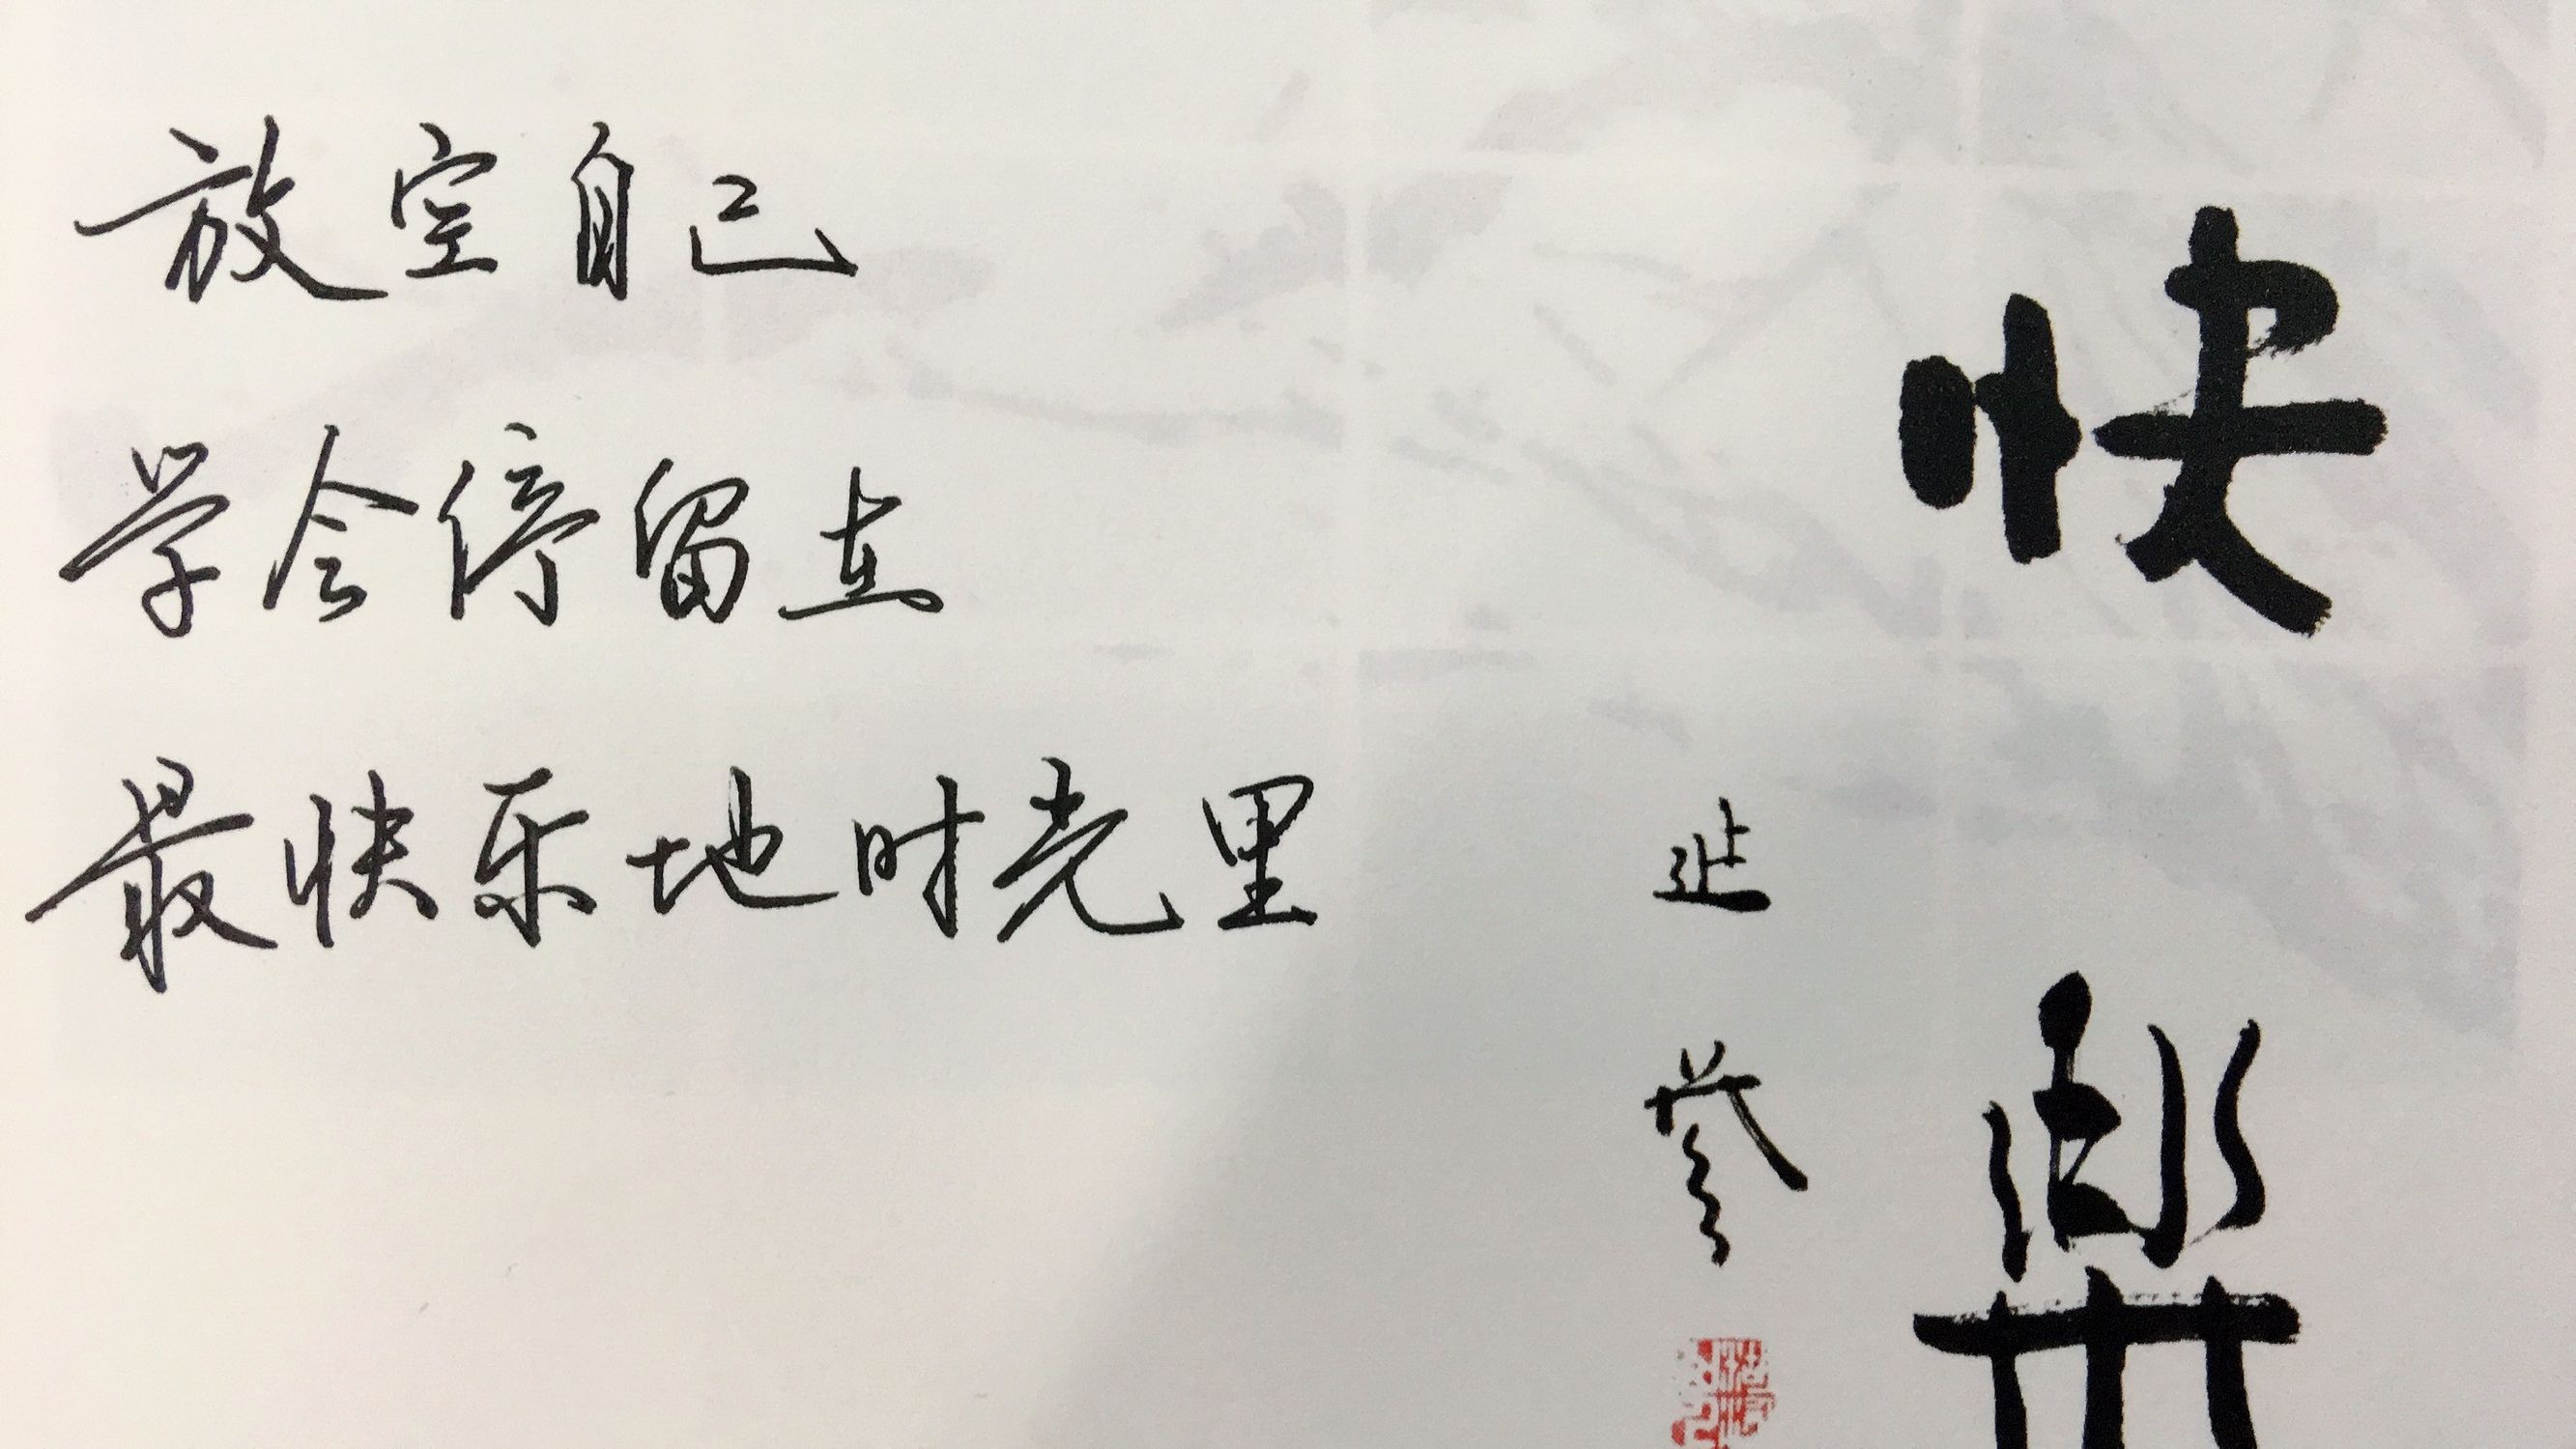 放空自己
学会停留在
最快乐地时光里
快樂
延参